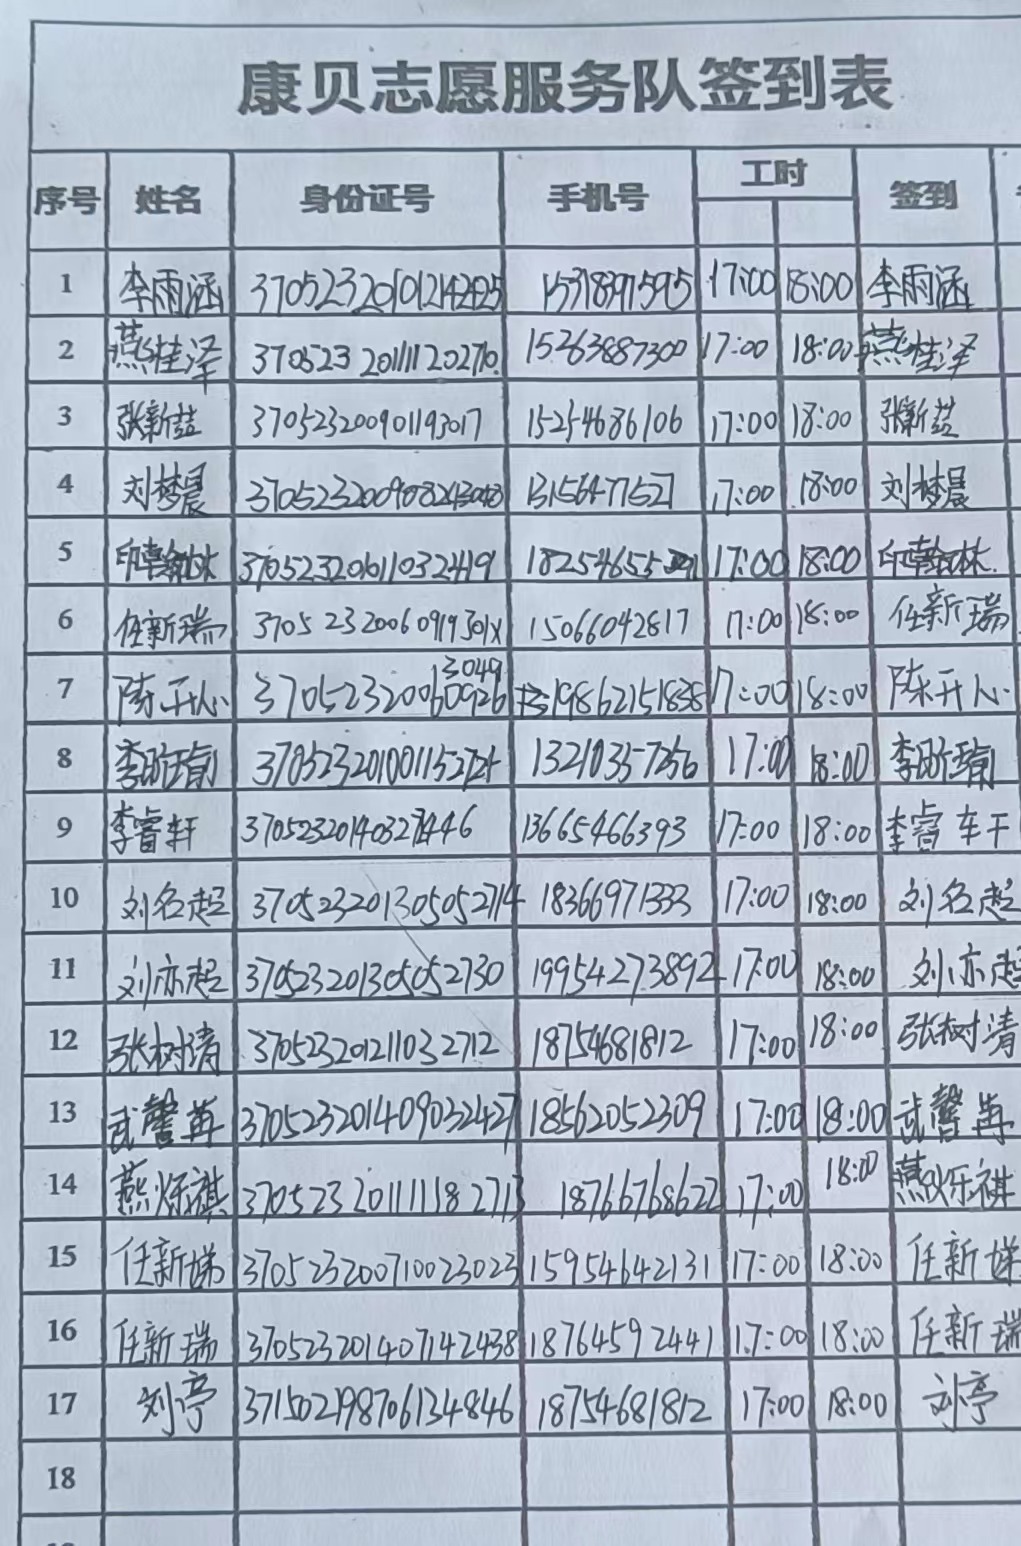 康贝志愿服务队签到表
序号 姓名 身份证号 手机号 工时 签到
1 李雨涵 17:00 18:00 李雨涵
2 燕桂泽 15263887300 17:00 18:00 燕桂泽
3 张新益 370523200901193017 15254686106 17:00 18:00 张新益
4 刘梦晨 13156477527 17:00 18:00 刘梦晨
5 印翰林 370523201611032419 17:00 18:00 印翰林
6 任新瑞 37052320060919301X 15066042817 17:00 18:00 任新瑞
7 陈开心 3049 37052320060926 19862151838 17:00 18:00 陈开心
8 李昕瑜 13210357256 17:00 18:00 李昕瑜
9 李睿轩 13665466393 17:00 18:00 李睿轩
10 刘名起 370523201305052714 18366971333 17:00 18:00 刘名起
11 刘亦起 370523201305052730 19954273892 17:00 18:00 刘亦起
12 张树清 370523201211032712 18754681812 17:00 18:00 张树清
13 武馨苒 370523201409032427 18562052309 17:00 18:00 武馨苒
14 燕烁祺 370523201111182713 18766768622 17:00 18:00 燕烁祺
15 任新娣 370523200710023023 15954642131 17:00 18:00 任新娣
16 任新瑞 370523201407142438 18764592441 17:00 18:00 任新瑞
17 刘亭 371502198706134846 18754681812 17:00 18:00 刘亭
18